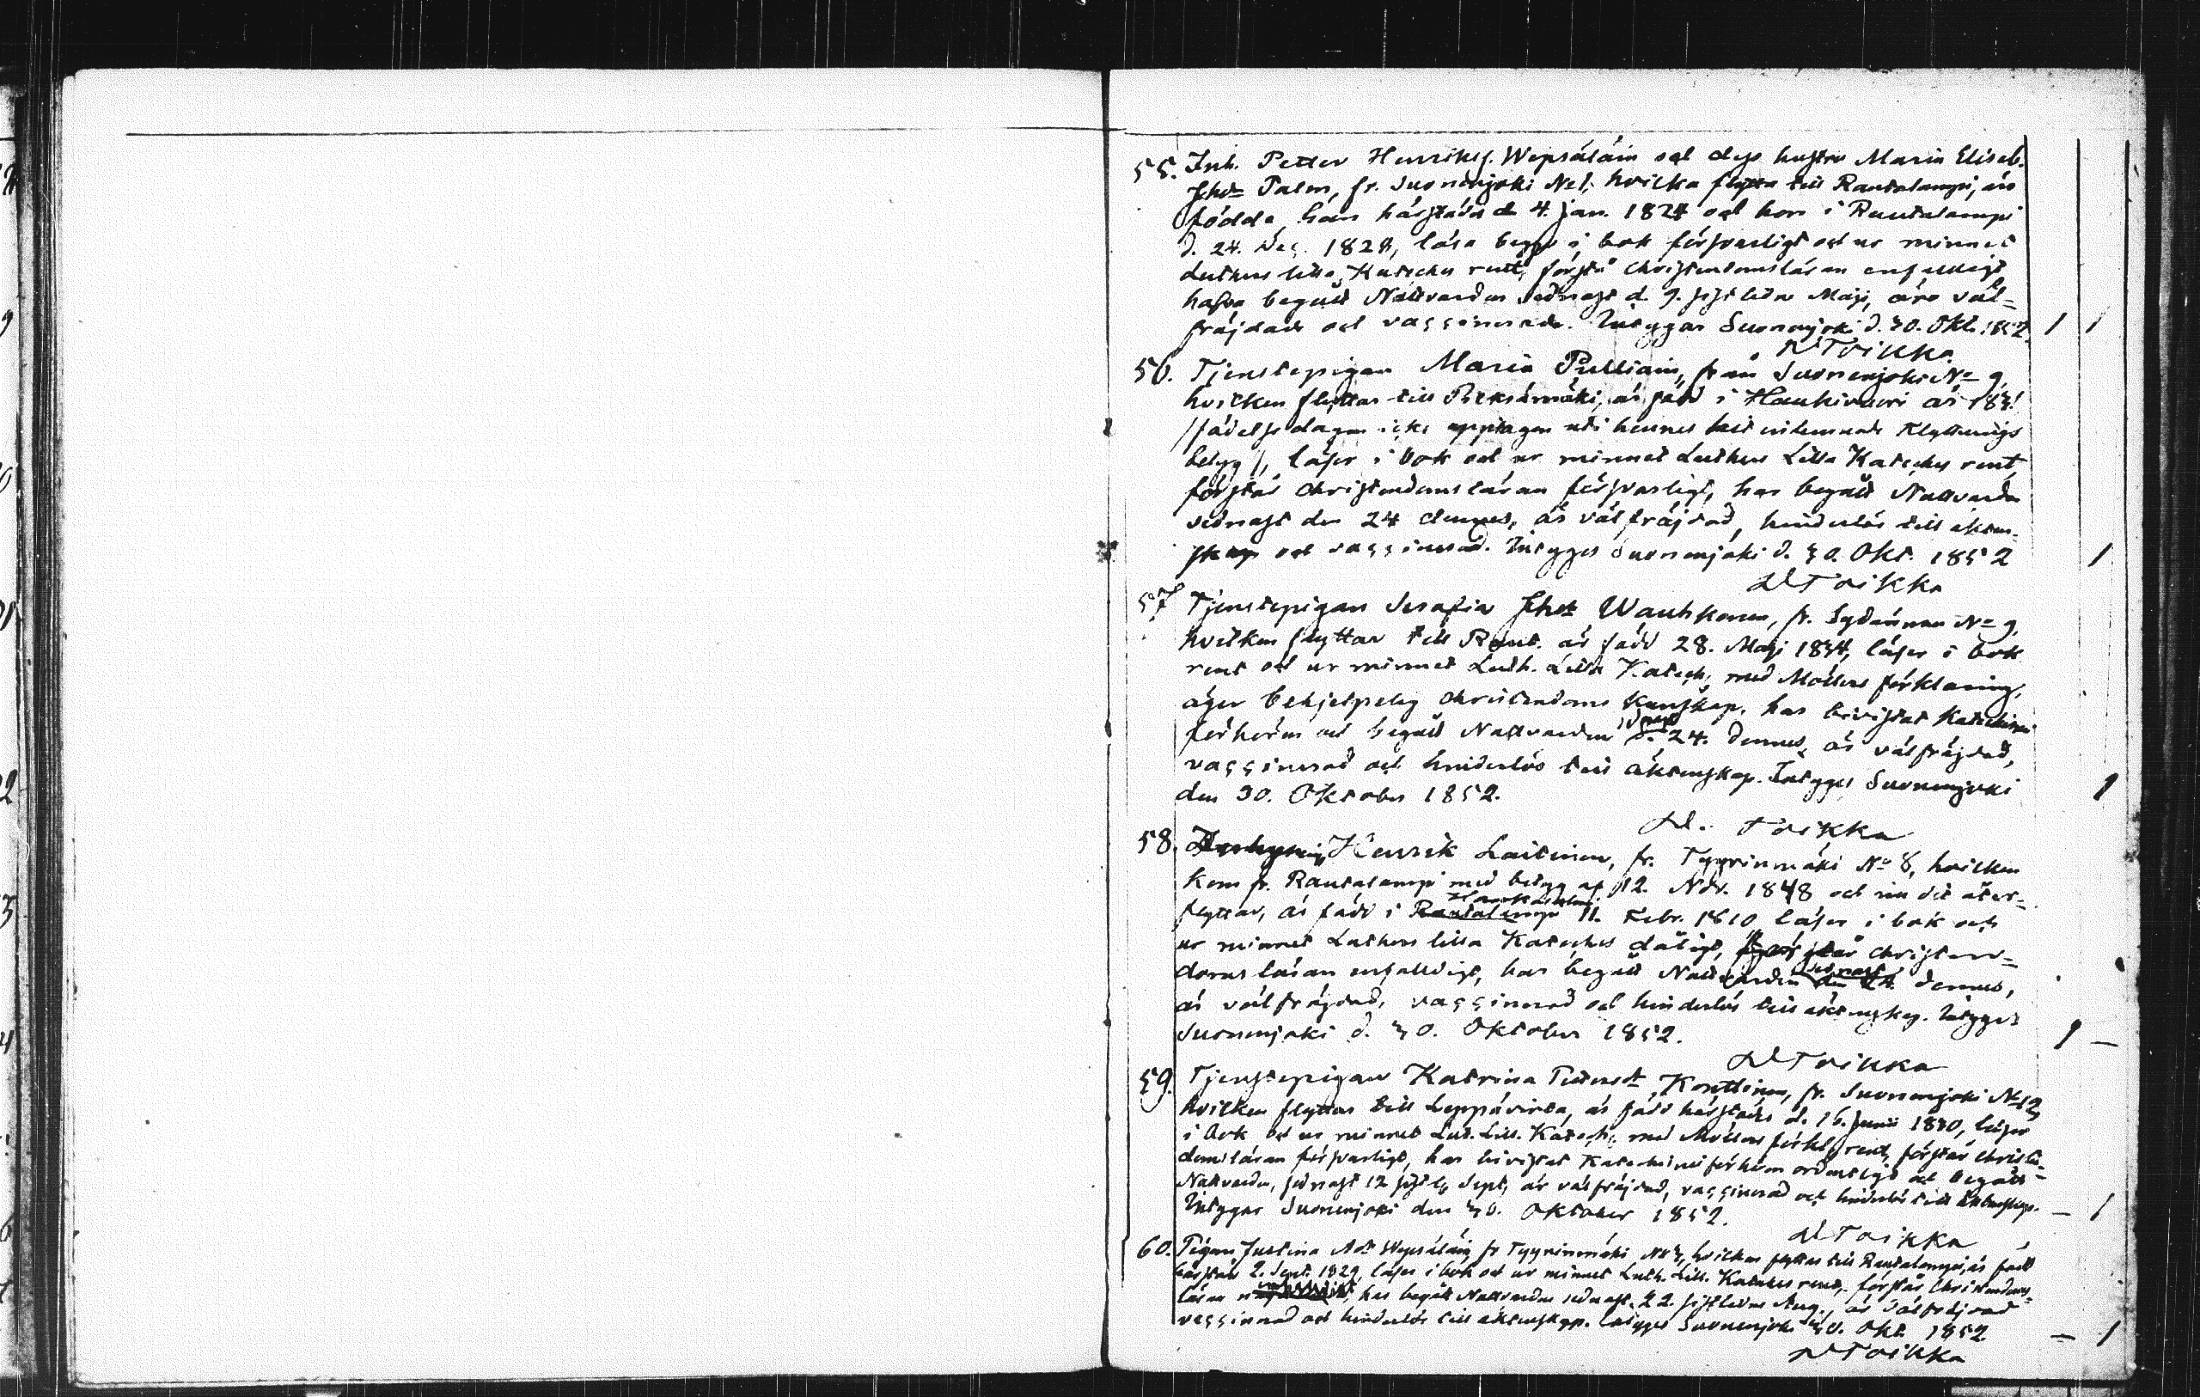 55. Inh. Petter Henriks. Wepsäläin och dess hustru Maria Elisab.
Jhdr Palm, fr. Suonenjoki No 1, hvilka flytta till Rautalampi, äro
födde, han härstädes d. 4. Jan. 1824 och hon i Rautalampi
d. 24. Dec. 1828, läsa begge i bok försvarligt och ur minnet
Luthers lilla Kateches rent, förstå Christendomsläran enfaldigt
hafva begått Nattvarden sednast d. 9. sistledne Maji, äro väl=
fräjdade och vaccinerade. Intygar Suonenjoki d. 30. Okt. 1852. 1 1
Toikka
56. Tjenstepigan Maria Pulliain, från Suonenjoki No 9,
hvilken flyttar till Pieksämäki, är född i Haukivuori år 1831
/födelsedagen icke upptagen uti hennes hit inlemnade flyttnings
betyg/, läser i bok och ur minnet Luthers Lilla Kateches rent
förstår Christendomsläran försvarligt, har begått Nattvarden
sednast den 24 dennes, är välfräjdad, hinderlös till äkten-
skap och vaccinerad. Intygas Suonenjoki d. 30. Okt. 1852 1
Toikka
57 Tjenstepigan Serafia Jhdr Wauhkonen, fr. Sydänmaa No 9,
hvilken flyttar till Raut. är född 28. Maji 1834, läser i bok
rent och ur minnet Luth. Lilla Katech. med Möllers förklaring,
äger behjelpelig christendoms kunskap, har bevistat Katechismi
förhören och begått Nattvarden sednast d. 24. dennes, är välfräjdad,
vaccinerad och hinderlös till äktenskap. Intygas Suonenjoki
den 30. Oktober 1852. 1
Toikka
58. Henrik Laitinen, fr. Tyyrinmäki No 8, hvilken
kom fr. Rautalampi med betyg af 12. Nov. 1848 och nu dit åter=
flyttar, är född i Rautalampi Hankasalmi 11. Febr. 1810 läser i bok och
ur minnet Luthers lilla Kateches dåligt, förstår christen=
domsläran enfaldigt, har begått Nattvarden sednast den 24 dennes,
är välfräjdad, vaccinerad och hinderlös till äktenskap. Intygas
Suonenjoki d. 30. Oktober 1852. 1 –
Toikka
59. Tjenstepigan Katrina Petersdr Konttinen, fr. Suonenjoki No 12
hvilken flyttar till Leppävirta, är född härstädes d. 16. Junii 1830, läser
i bok och ur minnet Lut. Lill. Katech. med Möllers förkl. rent, förstår christen=
domsläran försvarligt, har bevistat Katechismiförhören ordentligt och begått
Nattvarden, sednast 12 sistl. Sept., är välfräjdad, vaccinerad och hinderlös till äktenskap.
Intygar Suonenjoki den 30. Oktober 1852. – 1
Toikka
60. Pigan Justina Adr Wepsäläin, fr Tyyrinmäki No 3, hvilken flyttar till Rautalampi, är född
härstädes 2. Sept. 1829, läser i bok och ur minnet Luth. Lill. Kateches rent, förstår Christendoms=
läran har begått Nattvarden sednast 22. sistledne Aug., är välfräjdad
vaccinerad och hinderlös till äktenskap. Intygas Suonenjoki 30. Okt. 1852. – 1
Toikka